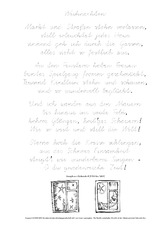 Weihnachten
Markt und Straßen stehn verlassen,
still erleuchtet jedes Haus,
sinnend geh ich durch die Gassen,
alles sieht so festlich aus.
An den Fenstern haben Frauen
buntes Spielzeug fromm geschmückt,
tausend Kindlein stehn und schauen,
sind so wunderstill beglückt.
Und ich wandre aus den Mauern
bis hinaus ins freie Feld,
hehres Glänzen, heilges Schauern!
Wie so weit und still die Welt!
Sterne hoch die Kreise schlingen,
aus des Schnees Einsamkeit
steigt's wie wunderbares Singen –
O du gnadenreiche Zeit!
Joseph von Eichendorff (1788-1857)